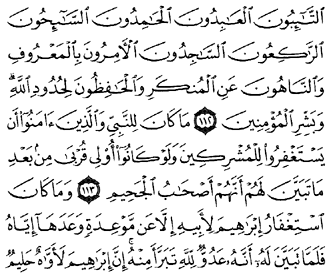 ٱلتَّٰٓئِبُونَ ٱلۡعَٰبِدُونَ ٱلۡحَٰمِدُونَ ٱلسَّٰٓئِحُونَ
ٱلرَّٰكِعُونَ ٱلسَّٰجِدُونَ ٱلۡأٓمِرُونَ بِٱلۡمَعۡرُوفِ
وَٱلنَّاهُونَ عَنِ ٱلۡمُنكَرِ وَٱلۡحَٰفِظُونَ لِحُدُودِ ٱللَّهِۗ
وَبَشِّرِ ٱلۡمُؤۡمِنِينَ ١١٢ مَا كَانَ لِلنَّبِيِّ وَٱلَّذِينَ ءَامَنُوٓاْ أَن
يَسۡتَغۡفِرُواْ لِلۡمُشۡرِكِينَ وَلَوۡ كَانُوٓاْ أُوْلِي قُرۡبَىٰ مِنۢ بَعۡدِ
مَا تَبَيَّنَ لَهُمۡ أَنَّهُمۡ أَصۡحَٰبُ ٱلۡجَحِيمِ ١١٣ وَمَا كَانَ
ٱسۡتِغۡفَارُ إِبۡرَٰهِيمَ لِأَبِيهِ إِلَّا عَن مَّوۡعِدَةٖ وَعَدَهَآ إِيَّاهُ
فَلَمَّا تَبَيَّنَ لَهُۥٓ أَنَّهُۥ عَدُوّٞ لِّلَّهِ تَبَرَّأَ مِنۡهُۚ إِنَّ إِبۡرَٰهِيمَ لَأَوَّٰهٌ حَلِيمٞ